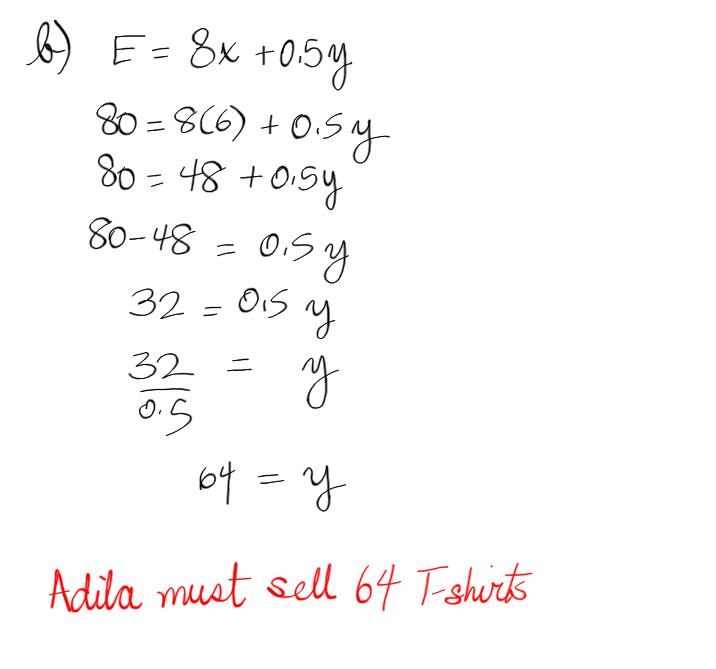 b) E = 8x + 0.5y
80 = 8(6) + 0.5y
80 = 48 + 0.5y
80 - 48 = 0.5y
32 = 0.5 y
32/0.5 = y
64 = y
Adila must sell 64 T-shirts